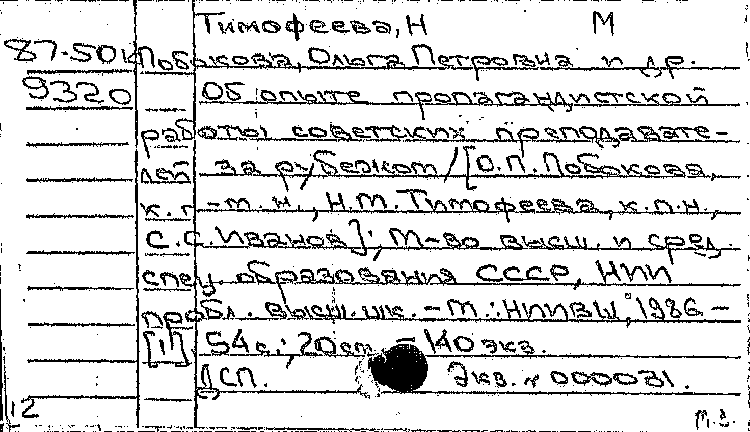 Тимофеева, Н М
87-50 Лобокова, Ольга Петровна и др.
9320 Об опыте пропагандистской
работы советских преподавате-
лей за рубежом / [О.П. Лобокова,
к. г.-м. н., Н.М. Тимофеева, к.п.н.,
С.С. Иванов]; М-во высш. и сред.
спец. образования СССР, НИИ
пробл. высш. шк. - М.: НИИВШ, 1986 -
[1] 54 с.; 20 см - 140 экз.
ДСП. Экз. № 000031.
12 М.З.